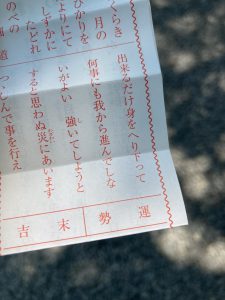 くらき
月の
ひかりを
よりにて
しずかに
たどれ
のべの
道
運勢
末吉
出来るだけ身をへり下って
何事にも我から進んでしな
いがよい 強いてしようと
すると思わぬ災にあいます
つゝしんで事を行え